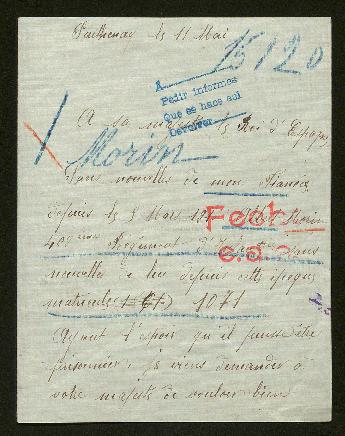 Parthenay le 11 Mai
A 15120
Pedir informes
Que se hace así
Devolver
A sa majesté le Roi d'Espagne
Morin
Sans nouvelles de mon fiancé
depuis le 3 Mars Morin
Fech
Régiment d'
c.d.
nouvelles de lui depuis cette époque
matricule 1071
Ayant l'espoir qu'il puisse être
prisonnier, je viens demander à
votre majesté de vouloir bien